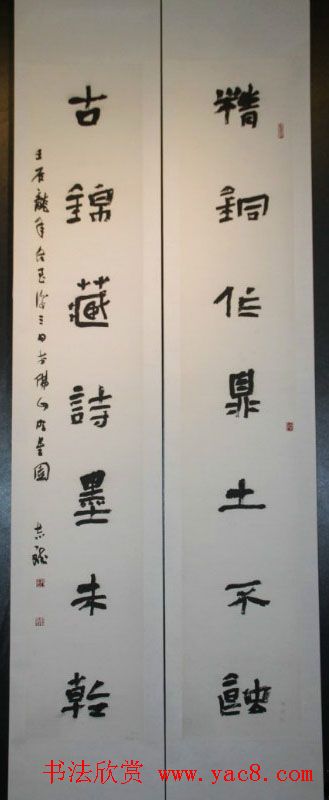 精銅作鼎土不蝕
古錦藏詩墨未乾
壬辰龍年三日佛山
书法欣赏 www.yac8.com